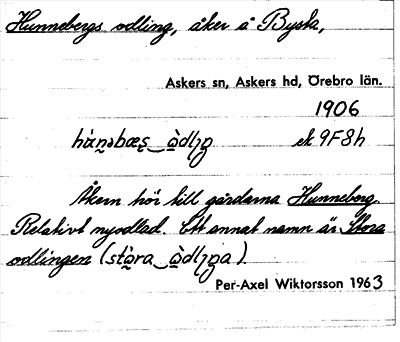 Hunnebergs odling, åker å Bysta,
Askers sn, Askers hd, Örebro län.
1906
ek 9F8h
Åkern hör till gårdarna Hunneberg.
Relativt nyodlad. Ett annat namn är Stora
odlingen (
Per-Axel Wiktorsson 1963